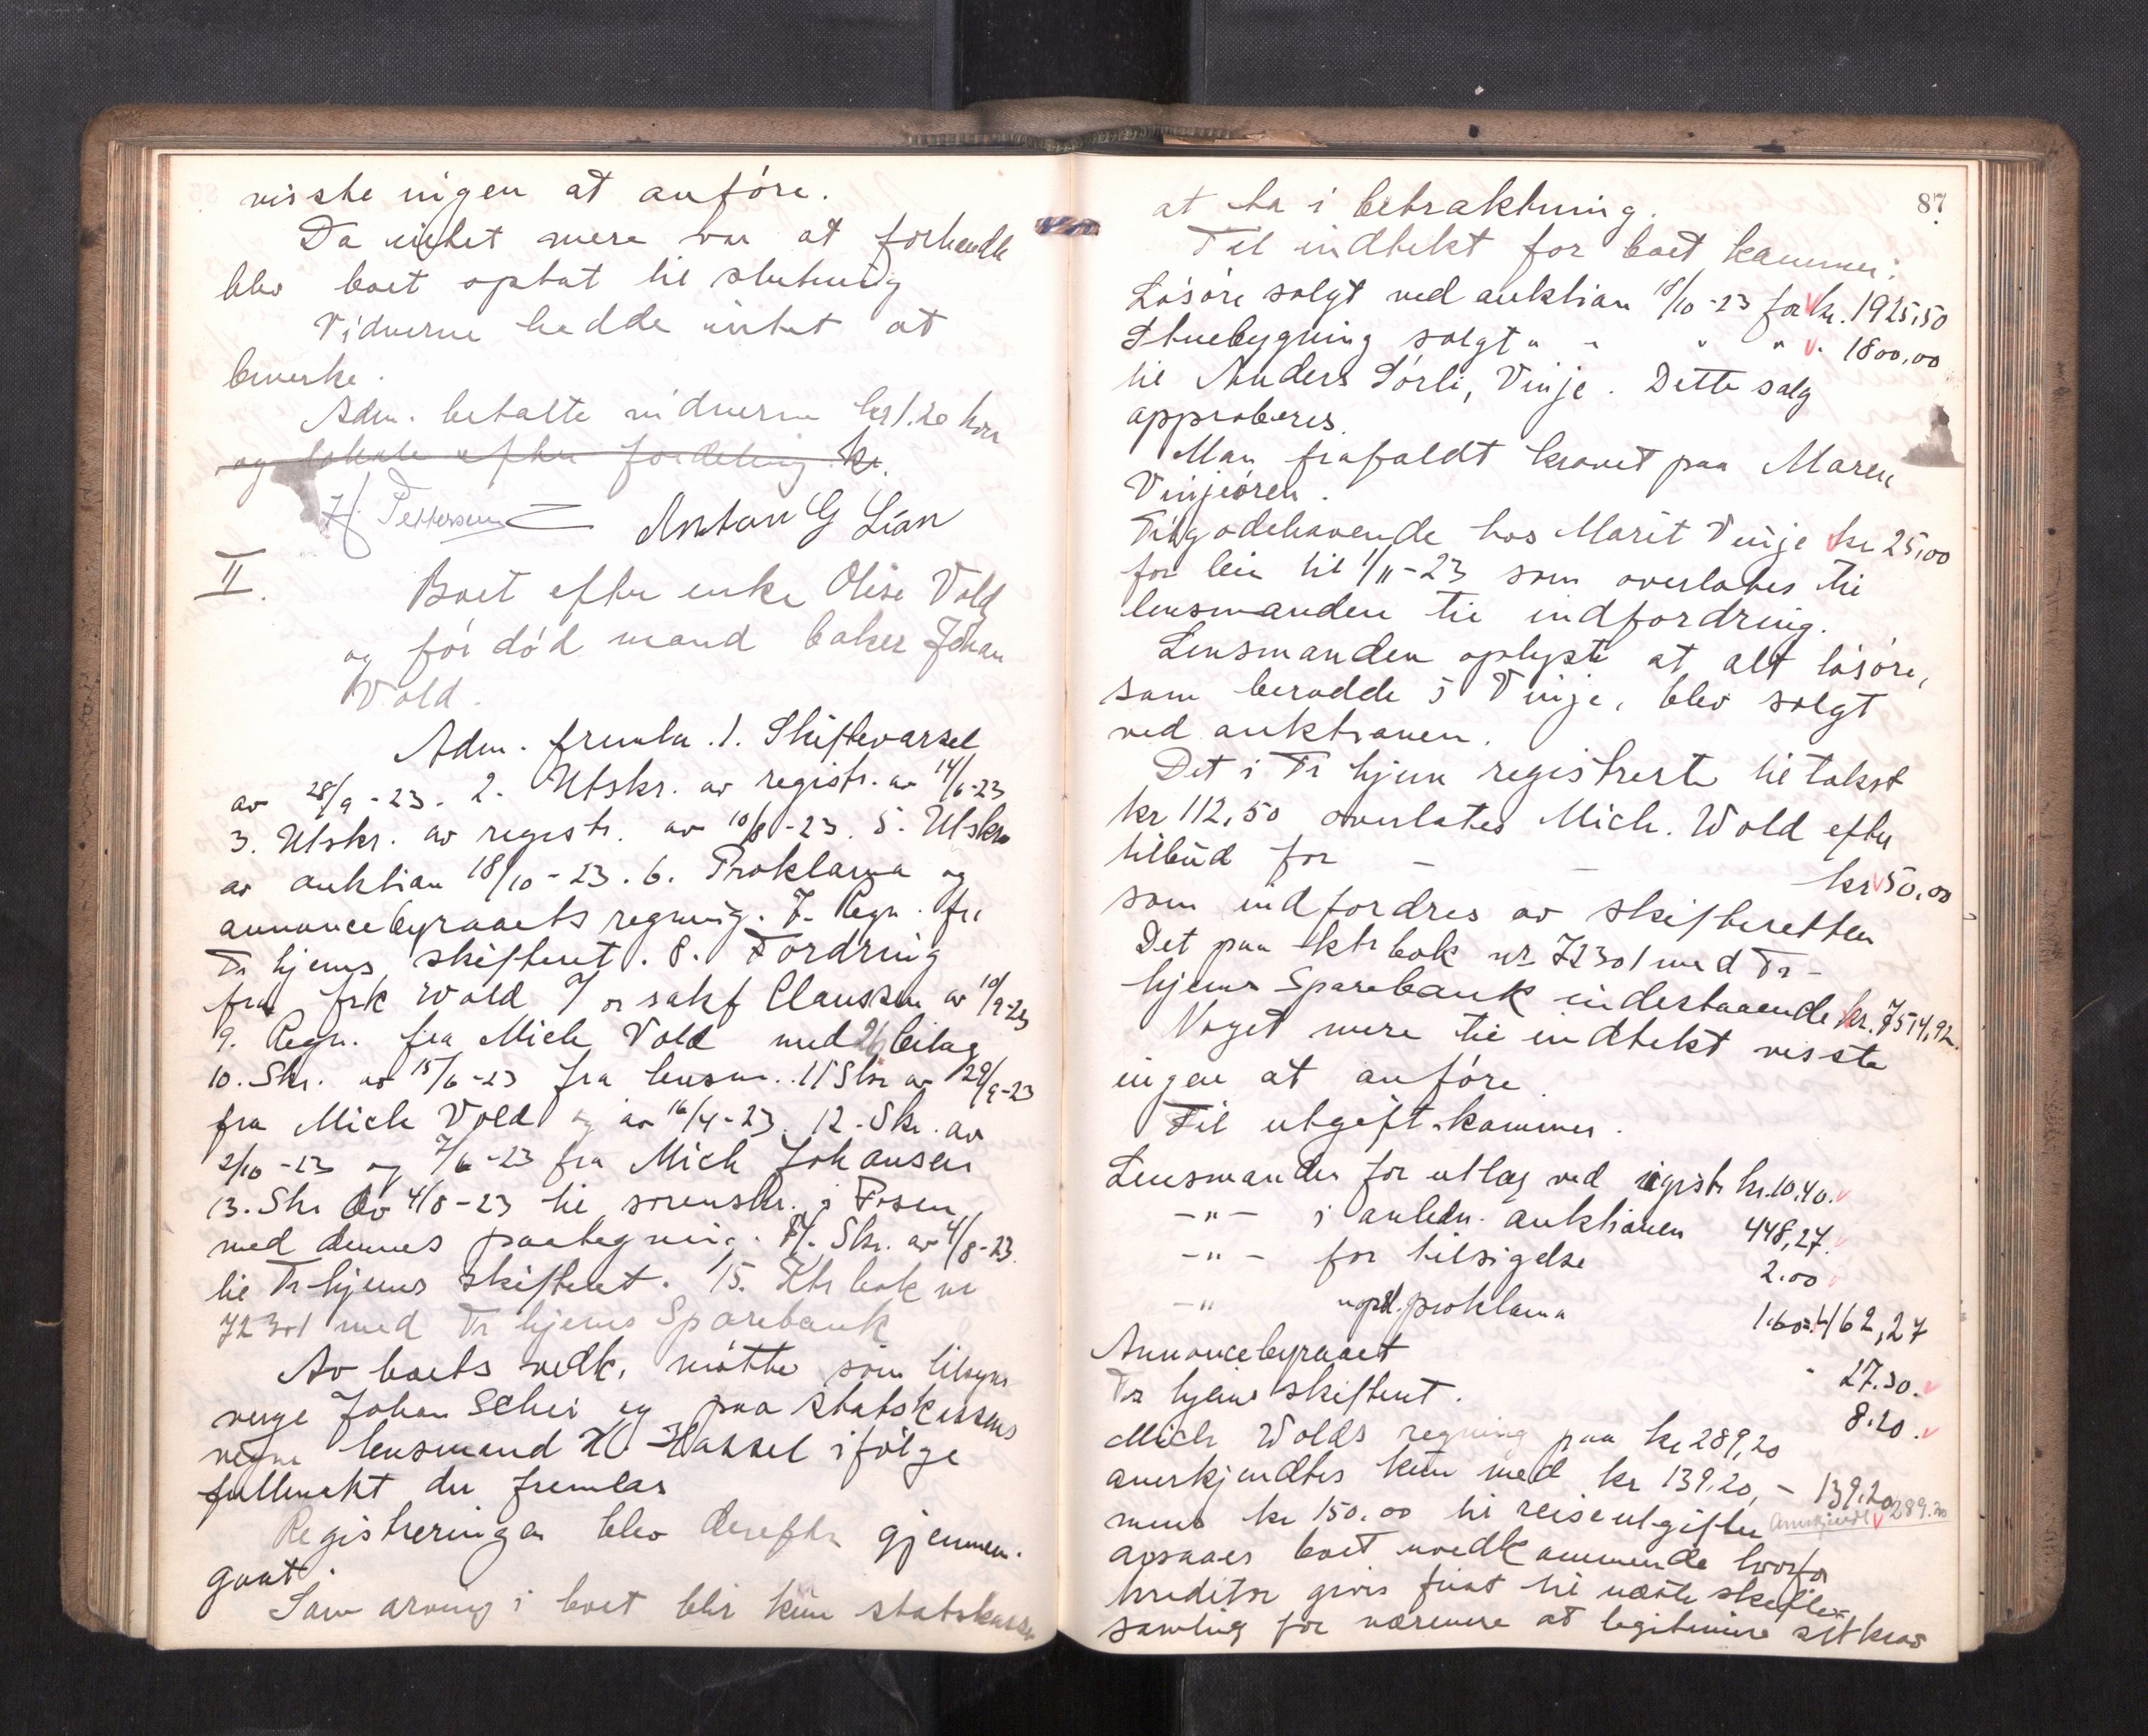 visste ingen at anføre.
Da intet mere var at forhandle
blev boet optat til slutning
Vidnerne hadde intet at
bemerke.
Adm. betalte vidnerne kr 1.20 hver
og lokale efter fordeling kr.
H. Pettersen Anton G Lian
II.
Boet efter enke Olise Vold
og før død mand baker Johan
Vold.
Adm. fremla. 1. Skiftevarsel
av 28/9-23. 2. Utskr. av registr. av 14/6-23
3. Utskr. av registr. av 10/8-23. 5. Utskr
av auktion 18/10-23. 6. Proklama og
annoncebyraaets regning. 7. Regn. fra
Tr hjems skifteret. 8. Fordring
fra frk Wold v/ o sakf Claussen av 10/9-23
9. Regn. fra Mich Vold med 26 bilag
10. Skr. av 15/6-23 fra lensm. 11 Skr av 29/9-23
fra Mich Vold og av 16/4-23. 12. Skr. av
2/10-23 og 7/6-23 fra Mich Johansen
13. Skr av 4/8-23 til sorenskr. i Fosen
med dennes paategning. 14. Skr. av 4/8-23
til Tr-hjems skifteret. 15. Ktr bok nr
72301 med Tr hjems Sparebank
Av boets vedk. møtte som tilsyns
verge Johan Schei og paa statskassens
vegne lensmand K. Hassel ifølge
fullmakt der fremlas
Registreringen blev derefter gjennem-
gaat.
Som arving i boet blir kun statskassen
87
at ta i betraktning.
Til indtekt for boet kommer:
Løsøre solgt ved auktion 18/10-23 for kr. 1925,50
Stuebygning solgt " " " " " 1800,00
til Anders Sørli, Vinje. Dette salg
approberes.
Man frafaldt kravet paa Maren
Vinjeøren.
Tilgodehavende hos Marit Vinje kr 25,00
for leie til 1/11-23 som overlates til
lensmanden til indfordring.
Lensmanden oplyste at alt løsøre,
som berodde i Vinje, blev solgt
ved auktionen.
Det i Tr hjem registrerte til takst
kr 112,50 overlates Mich. Wold efter
tilbud for - - kr 50,00
som indfordres av skifteretten
Det paa ktr bok nr 72301 med Tr-
hjems Sparebank indestaaende kr. 7514,92.
Noget mere til indtekt visste
ingen at anføre
Til utgift kommer.
Lensmanden for utlæg ved registr kr. 10,40.
-"- i anledn. auktionen 448,27.
-"- for tilsigelse 2.00
-" opsl. proklama 1.60= 462,27
Annoncebyraaet " 27.30.
Tr hjems skifteret. 8.20.
Mich Wolds regning paa kr 289,20
anerkjendtes kun med kr 139.20, - 139.20
mens kr 150.00 til reiseutgifter anerkjendt 289.20
ansaaes boet uvedkommende hvorfor
kreditor givis frist til næste skifte-
samling for nærmere at legitimere sit krav